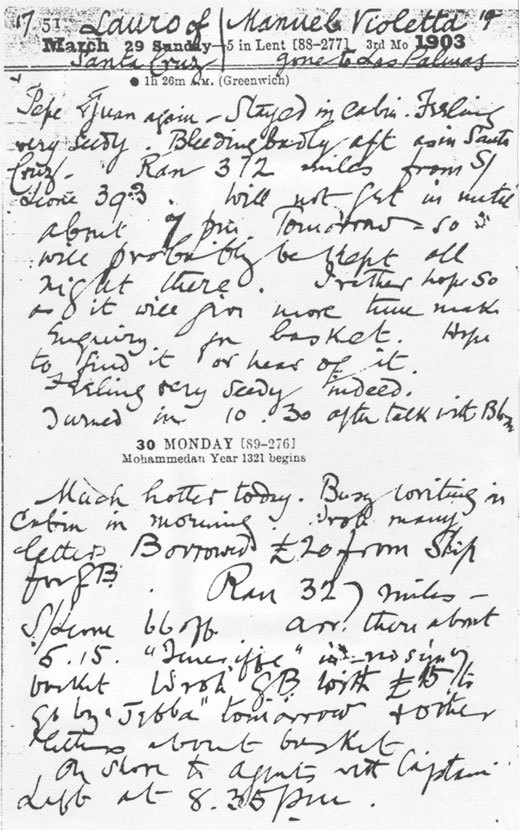 17.51 Lauro of / Manuel Violetta 19
March 29 Sunday—5 in Lent [88-277] 3rd Mo 1903
Santa Cruz gone to Las Palmas
1h 26m A.M. (Greenwich)
Pepe & Juan again - Stayed in cabin. Feeling
very seedy. Bleeding badly aft as in Santa
Cruz. Ran 372 miles from S/
Leone 393. Will not get in until
about 7 pm Tomorrow - so
will probably be kept all
night there. I rather hope so
as it will give more time make
Enquiry for basket. Hope
to find it or hear of it.
Feeling very seedy indeed.
Turned in 10.30 after talk with
30 MONDAY [89-276]
Mohammedan Year 1321 begins
Much hotter today. Busy writing in
Cabin in morning. Wrote many
letters Borrowed £20 from Ship
for GB. Ran 327 miles -
S/Leone 66 off arr. there about
5.15. "Teneriffe" in - no sign of
basket Wrote GB. with £15 to
go by "Jebba" tomorrow & other
letters about basket
On shore to Agents with Captain
Left at 8.35 pm.